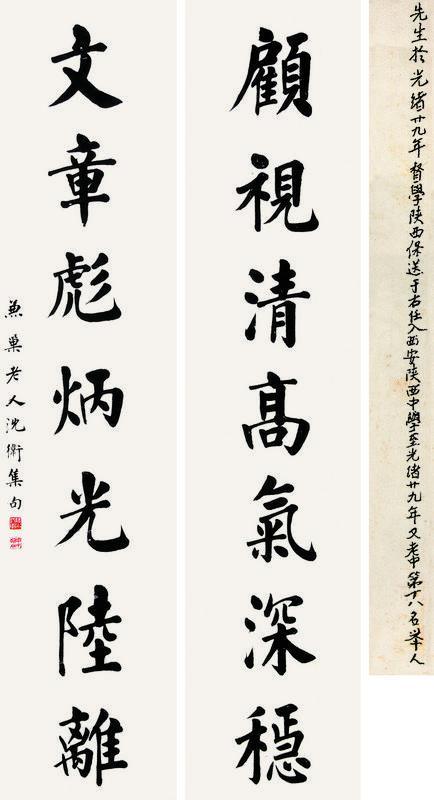 先生於光緒廿九年督學陝西保送于右任入西安陝西中學至光緒廿九年又考中第十八名舉人
顧視清高氣深穩
文章彪炳光陸離
兼巢老人沈衛集句